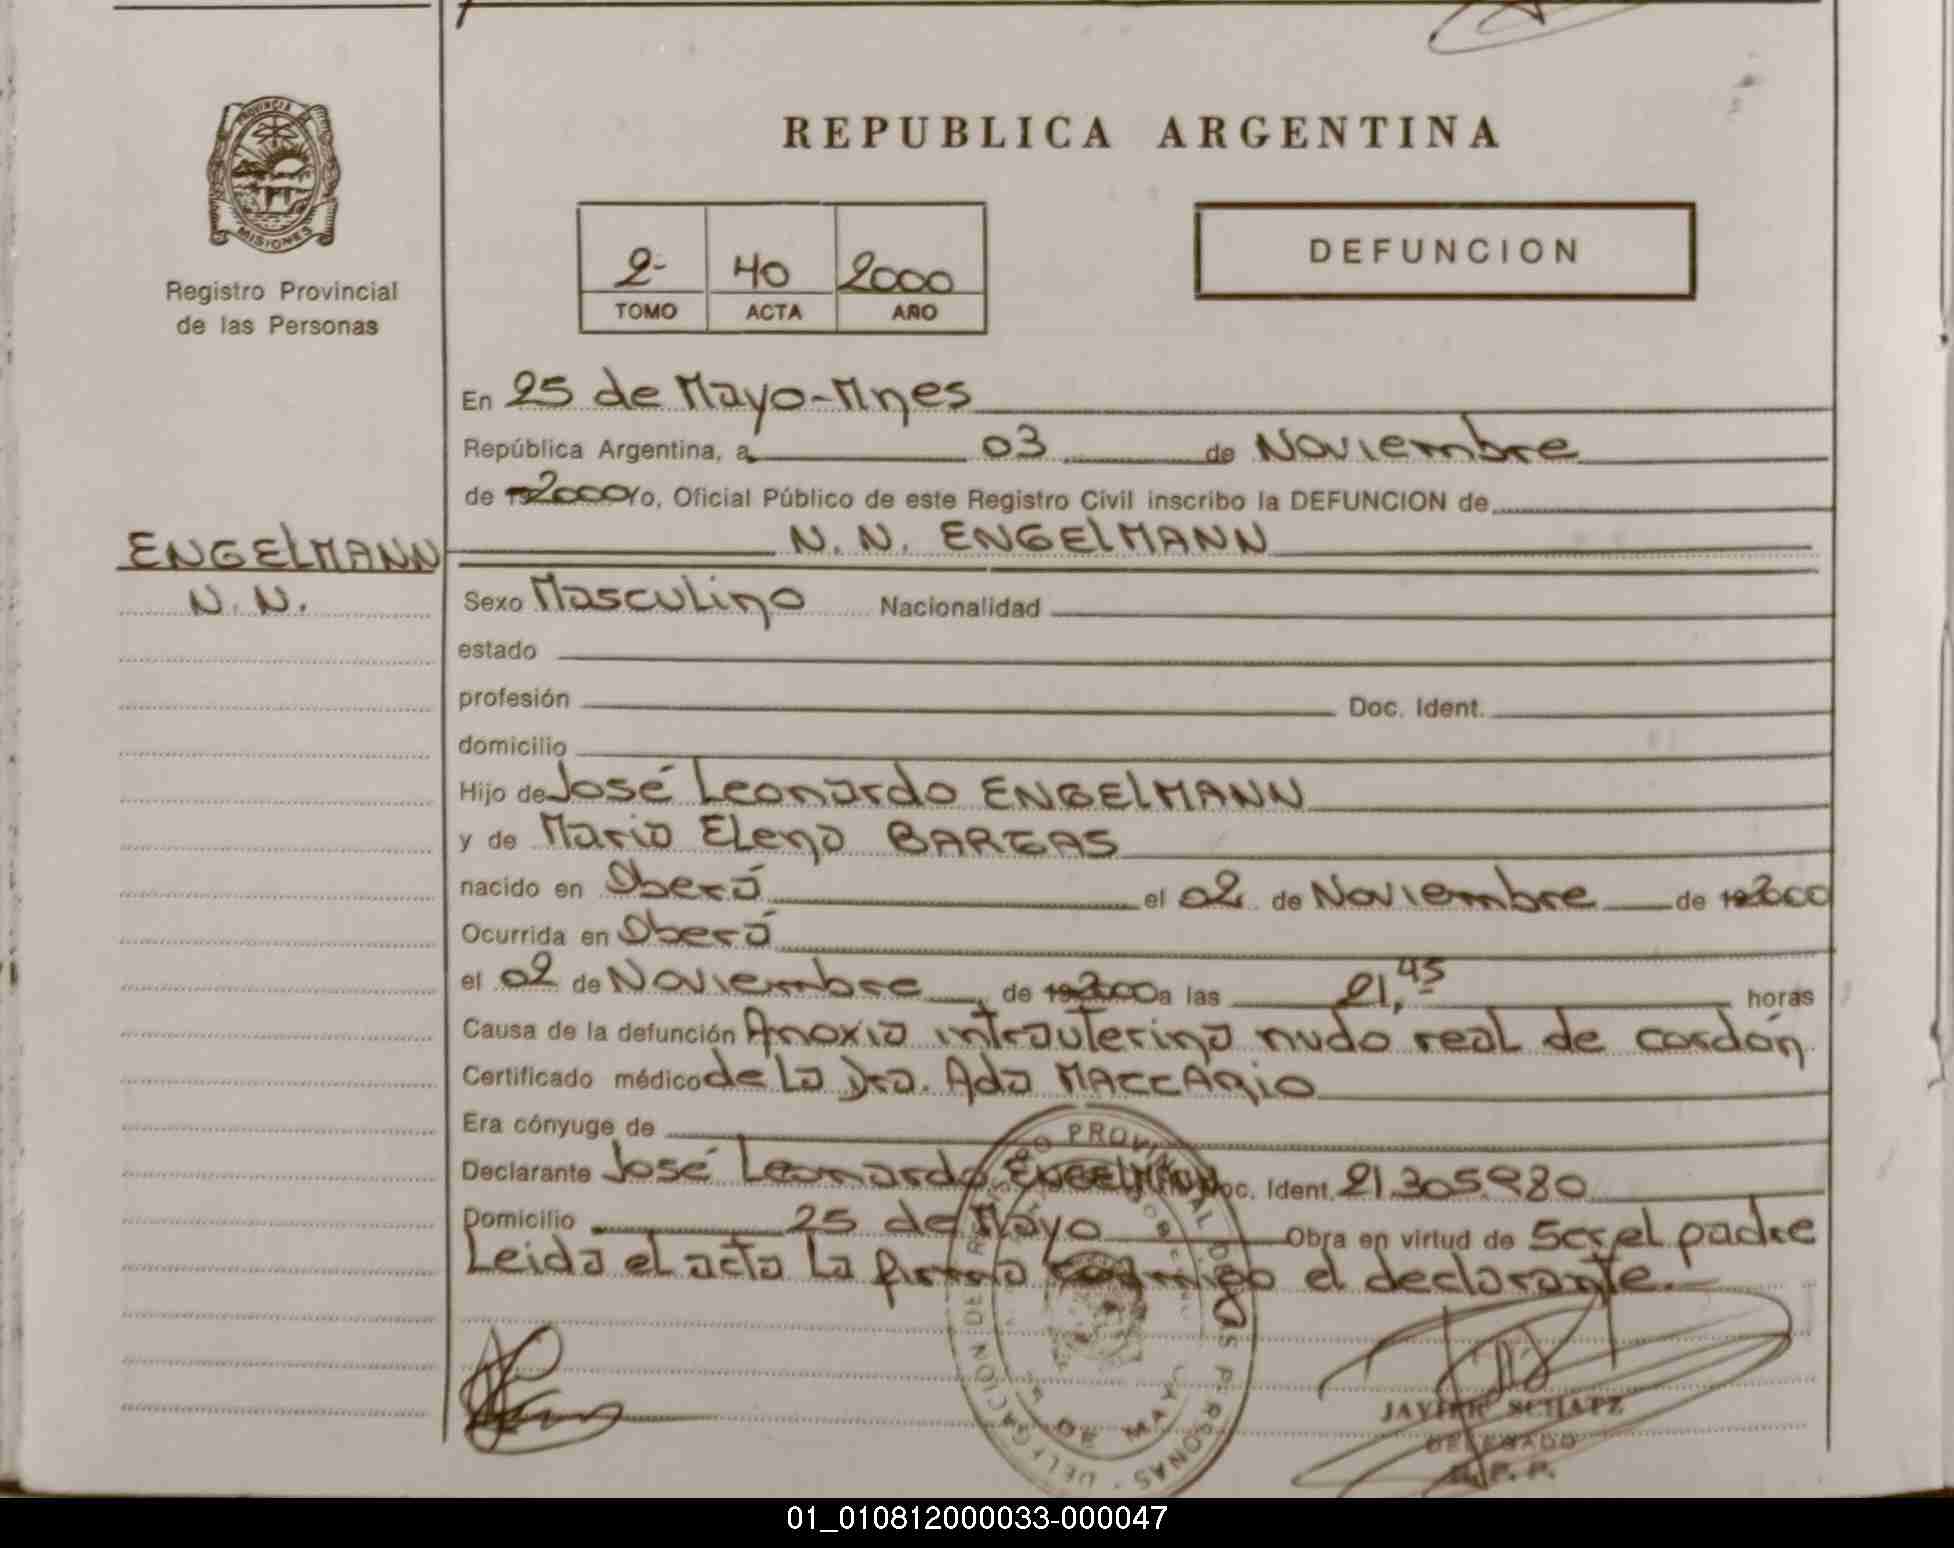 PROVINCIA
MISIONES
Registro Provincial
de las Personas
ENGELMANN
N. N.
REPUBLICA ARGENTINA
2- 40 2000
TOMO ACTA AÑO
DEFUNCION
En 25 de Mayo-Mnes
República Argentina, a 03 de Noviembre
de 19 2000 Yo, Oficial Público de este Registro Civil inscribo la DEFUNCION de
N. N. ENGELMANN
Sexo Masculino Nacionalidad
estado
profesión Doc. Ident.
domicilio
Hijo de José Leonardo ENGELMANN
y de Maria Elena BARGAS
nacido en Oberá el 02 de Noviembre de 19 2000
Ocurrida en Oberá
el 02 de Noviembre de 19 2000 a las 21,45 horas
Causa de la defunción Anoxia intrauterina nudo real de cordón
Certificado médico de La Dra. Ada MACCARIO
Era cónyuge de
Declarante José Leonardo ENGELMANN Doc. Ident. 21.305.980
Domicilio 25 de Mayo Obra en virtud de Ser el padre
Leida el acta La firma conmigo el declarante.-
JAVIER SCHATZ
DELEGADO
R. P. P.
01_010812000033-000047